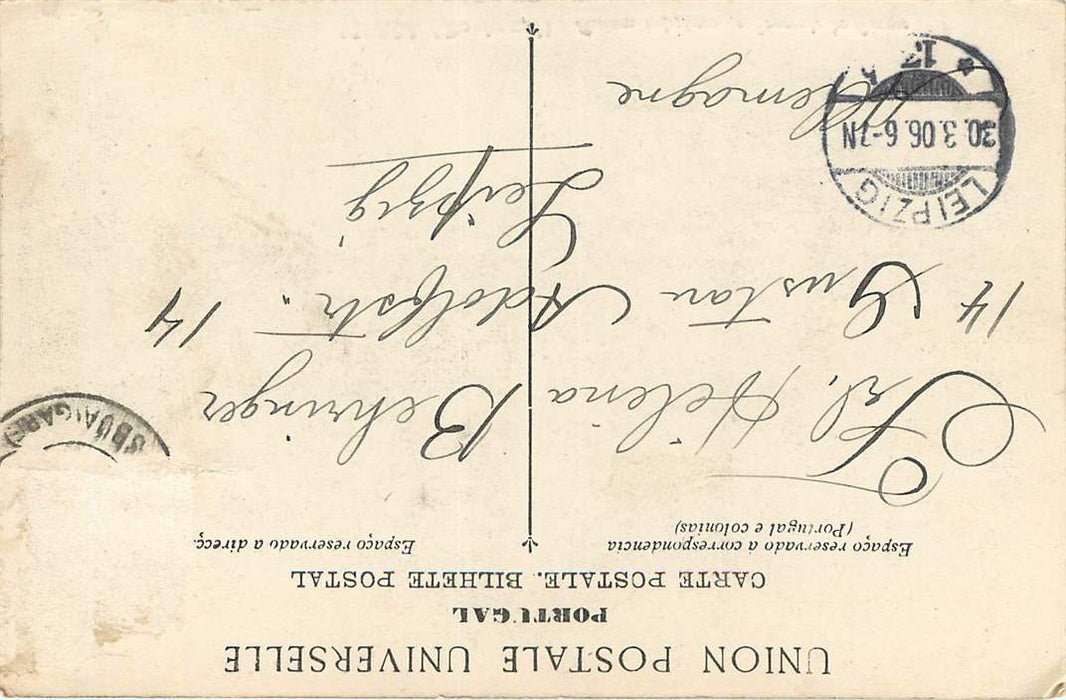 UNION POSTALE UNIVERSELLE
PORTUGAL
CARTE POSTALE. BILHETE POSTAL
Espaço reservado á correspondencia
(Portugal e colonias)
Espaço reservado a direcç.
Frl. Helena Behringer
14 Gustav Adolfstr. 14
Leipzig
Allemagne
LEIPZIG
30.3.06.6-7N